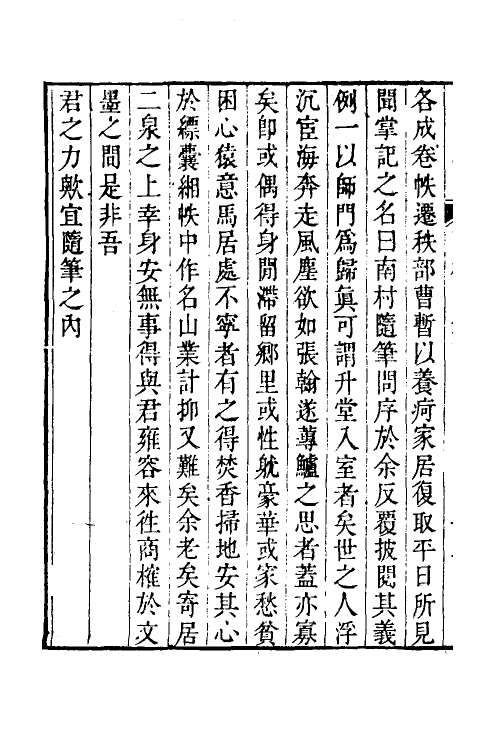 各成卷帙遷秩部曹暫以養疴家居復取平日所見
聞掌記之名曰南村隨筆問序於余反覆披閱其義
例一以師門爲歸眞可謂升堂入室者矣世之人浮
沉宦海奔走風塵欲如張翰遂蓴鱸之思者蓋亦寡
矣卽或偶得身閒滯留鄉里或性躭豪華或家愁貧
困心猿意馬居處不寧者有之得焚香掃地安其心
於縹囊緗帙中作名山業計抑又難矣余老矣寄居
二泉之上幸身安無事得與君雍容來徃商榷於文
墨之間是非吾
君之力歟宜隨筆之內